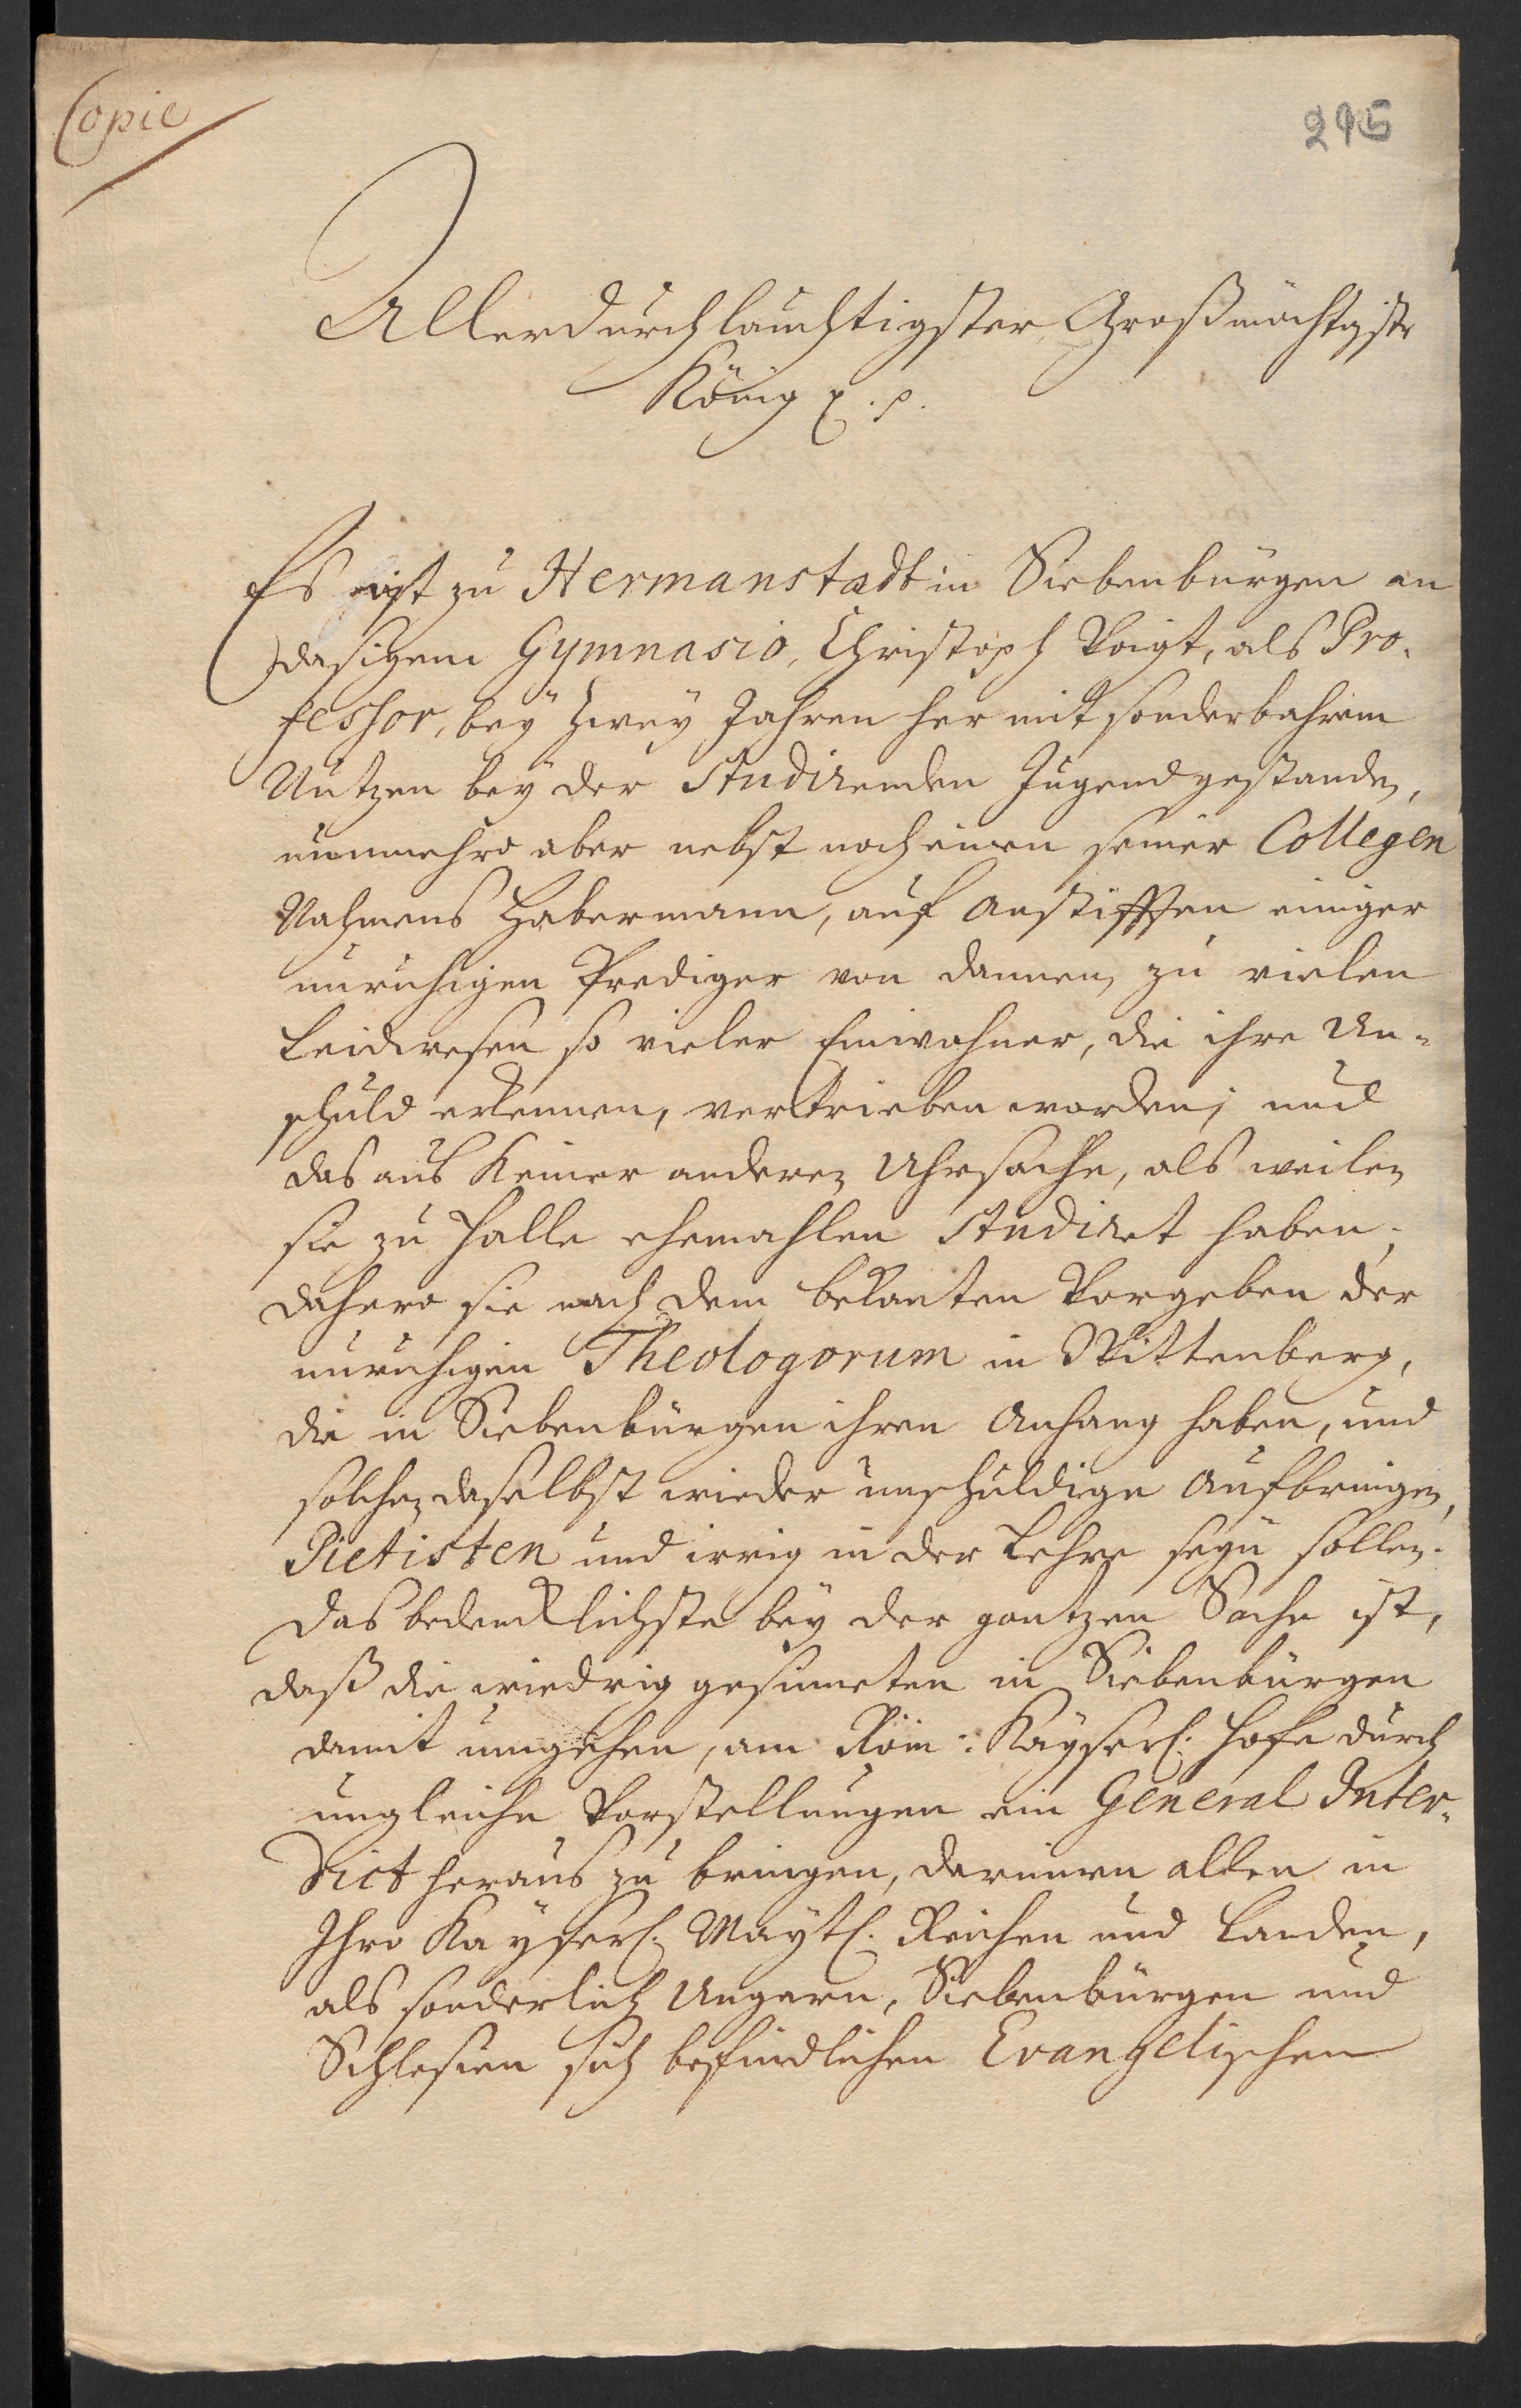 Copie
295
Allerdurchlauchtigster, Großmächtigster
König p. p.
Es ist zu Hermanstadt in Siebenbürgen an
dasigem Gymnasio, Christoph Voigt, als Pro-
fessor, bey zwey Jahren her mit sonderbahrem
Nutzen bey der Studirenden Jugend gestanden,
nunmehro aber nebst noch einen seiner Collegen
Nahmens Habermann, auf Anstifften einiger
unruhigen Prediger von dannen, zu vielen
Leidwesen so vieler Einwohner, die ihre Un-
schuld erkennen, vertrieben worden; und
das aus keiner anderen Uhrsache, als weilen
sie zu Halle ehemahlen Studiret haben;
dahero sie nach dem bekanten Vorgeben der
unruhigen Theologorum in Wittenberg,
die in Siebenbürgen ihren Anhang haben, und
solches daselbst wieder unschuldige aufbringen,
Pietisten und irrig in der Lehre seyn sollen.
Das bedencklichste bey der gantzen Sache ist,
daß die wiedrig gesinneten in Siebenbürgen
damit umgehen, am Röm: Kayserl. Hofe durch
ungleiche Vorstellungen ein General Inter-
dict heraus zu bringen, darinnen allen in
Ihro Kayserl. Maytl. Reichen und Landen,
als sonderlich Ungarn, Siebenbürgen und
Schlesien sich befindlichen Evangelischen